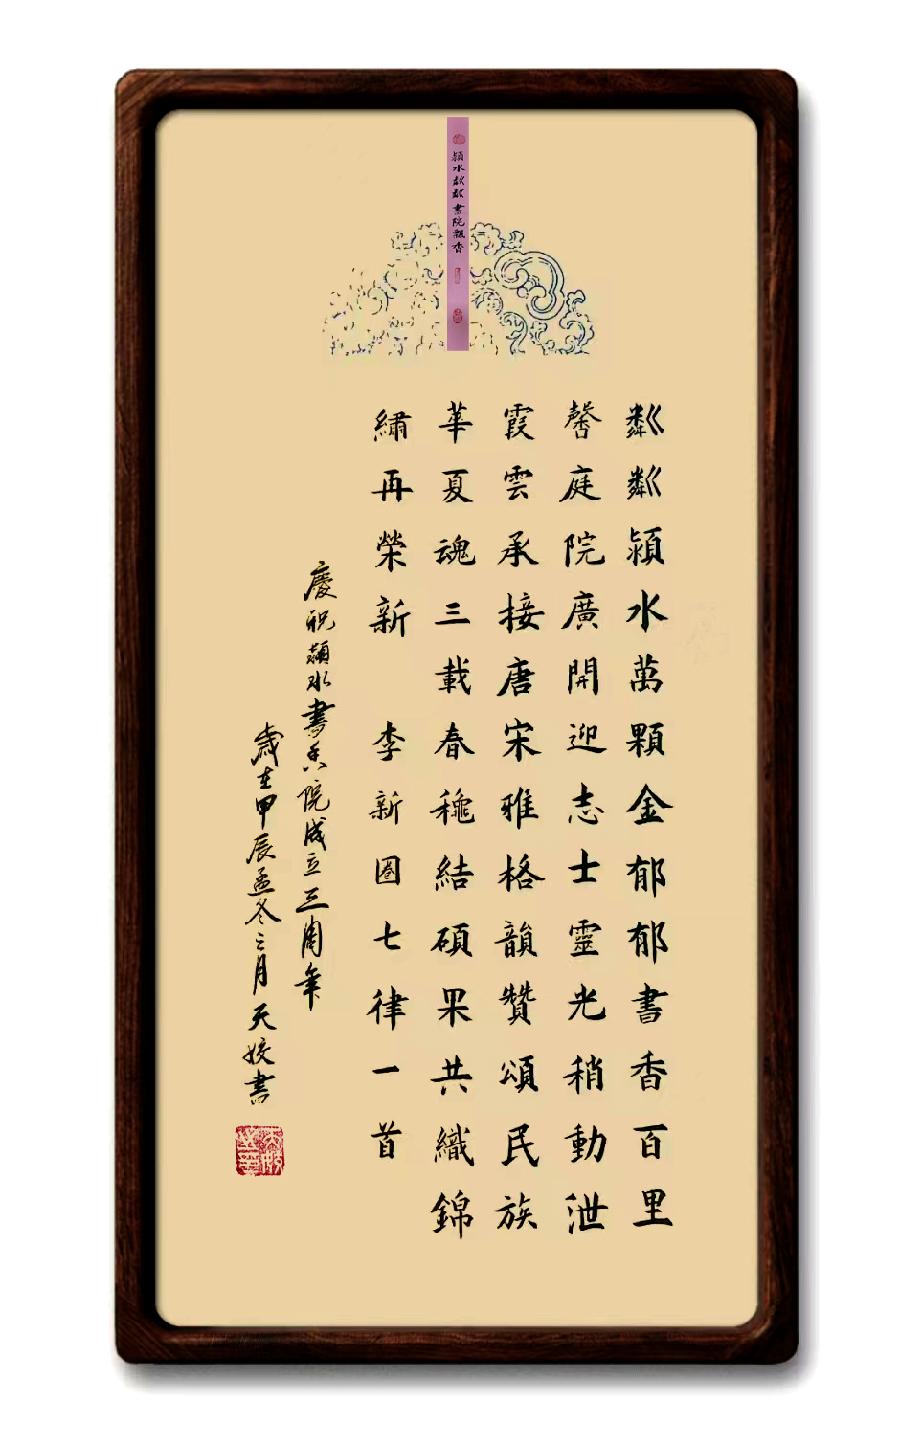 潁水粼粼書院飄香
粼粼潁水萬顆金郁郁書香百里
馨庭院廣開迎志士靈光稍動泄
霞雲承接唐宋雅格韻贊頌民族
華夏魂三載春穐結碩果共織錦
繡再榮新 李新圈七律一首
慶祝潁水書香院成立三周年
歲在甲辰孟冬之月天姣書